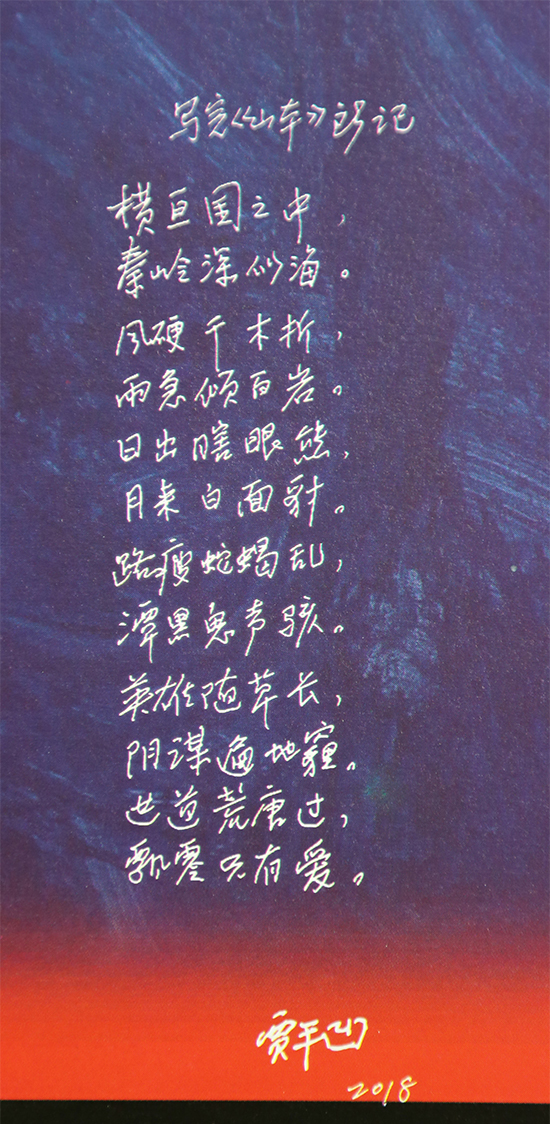 写完《山本》后记
横亘国之中，
秦岭深似海。
风硬千木折，
雨急倾百岩。
日出瞎眼熊，
月来白面豺。
路瘦蛇蝎乱，
潭黑鬼声骇。
英雄随草长，
阴谋遍地霾。
世道荒唐过，
飘零只有爱。
贾平凹
2018